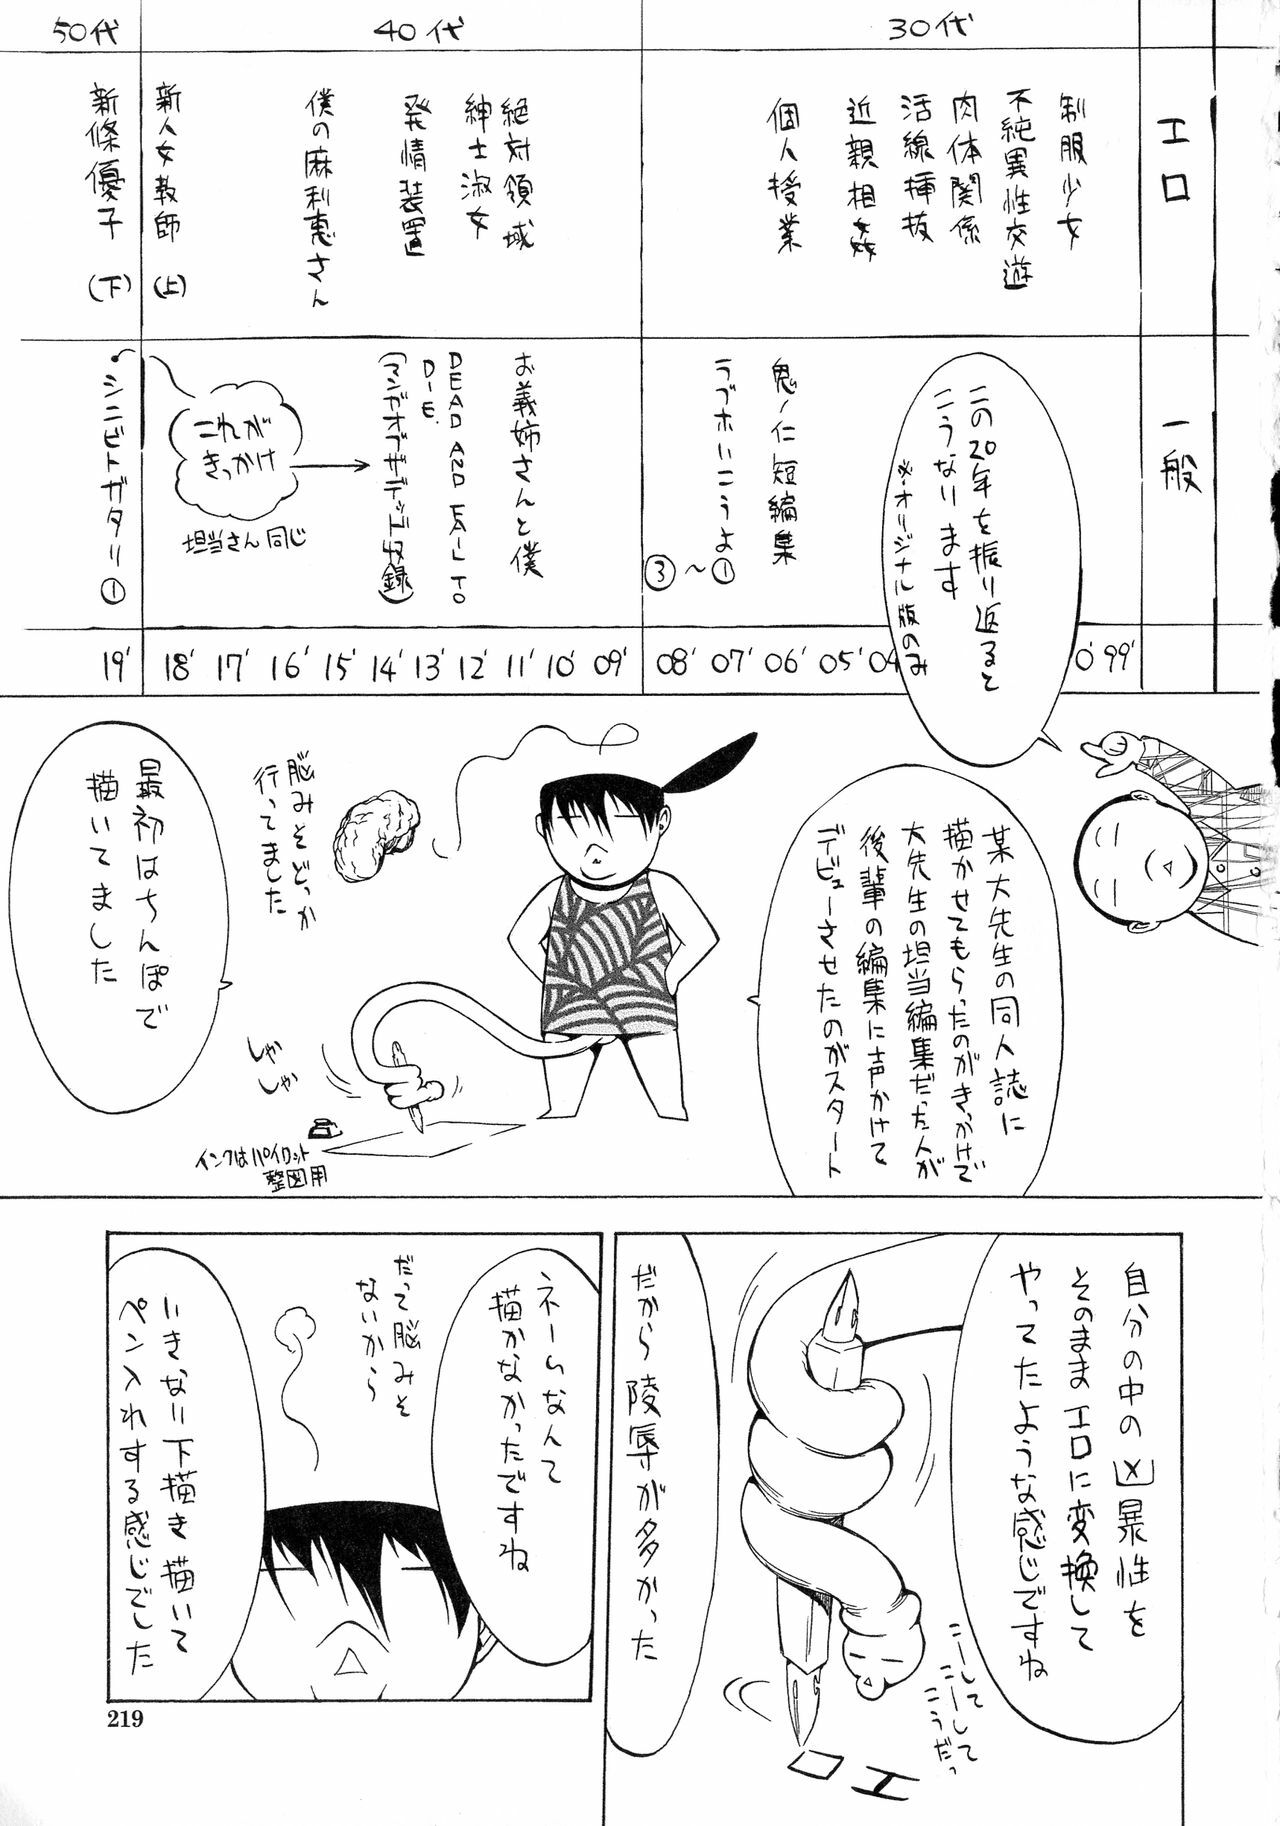 30代
40代
50代
エロ
制服少女
不純異性交遊
肉体関係
活線挿抜
近親相姦
個人授業
絶対領域
紳士淑女
発情装置
僕の麻利恵さん
新人女教師(上)
新條優子(下)
一般
鬼ノ仁短編集
ラブホいこうよ①〜③
お義姉さんと僕
DEAD AND FAIL TO
DIE.
(マンガオブザデッド収録)
これが
きっかけ
担当さん同じ
シニビトガタリ①
0'99'
04
05'
06'
07'
08'
09'
10'
11'
12'
13'
14'
15'
16'
17'
18'
19'
この20年を振り返ると
こうなります
※オリジナル版のみ
某大先生の同人誌に
描かせてもらったのがきっかけで
大先生の担当編集だった人が
後輩の編集に声かけて
デビューさせたのがスタート
脳みそどっか
行ってました
最初はちんぽで
描いてました
しゃか
しゃか
インクはパイロット
製図用
自分の中の凶暴性を
そのままエロに変換して
やってたような感じですね
こーして
こーして
こうだっ
エロ
だから陵辱が多かった
ネームなんて
描かなかったですね
だって脳みそ
ないから
いきなり下描き描いて
ペン入れする感じでした
219